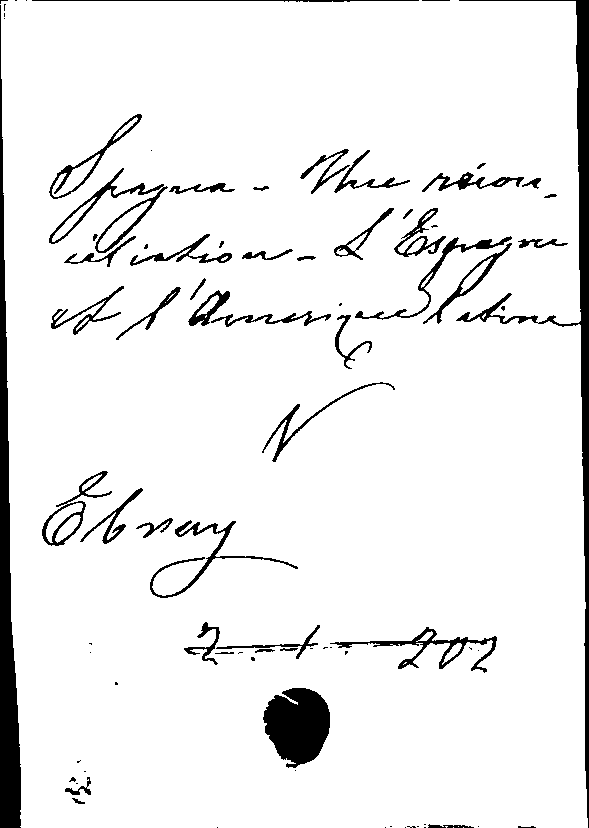 Spagna - Une récon-
ciliation - L'Espagne
et l'Amérique latine
V
Ebray
2. 1. 202